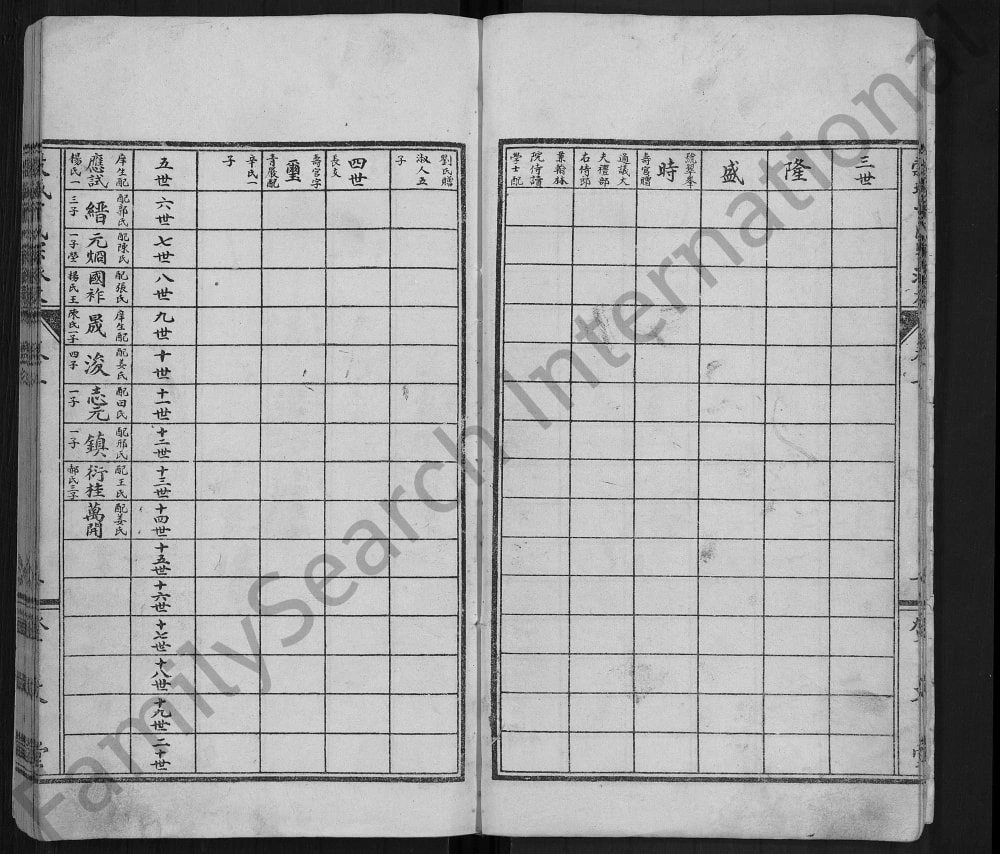 三世
隆
盛
號翠峯
時
壽官贈
通議大
夫禮部
右侍郎
兼翰林
院侍讀
學士配
劉氏贈
淑人五
子
四世
長支
壽官字
璽
青巖配
辛氏一
子
五世
庠生配
應試
楊氏一
六世
配郭氏
縉
三子
七世
配陳氏
元烱
一子瑩
八世
配張氏
國祚
楊氏王
九世
庠生配
晟
陳氏一子
十世
配姜氏
浚
四子
十一世
配田氏
志元
一子
十二世
配邢氏
鎮
一子
十三世
配王氏
衍桂
郝氏三子
十四世
配姜氏
萬開
十五世
十六世
十七世
十八世
十九世
二十世
FamilySearch International